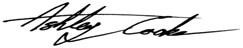 Ashley Cooke